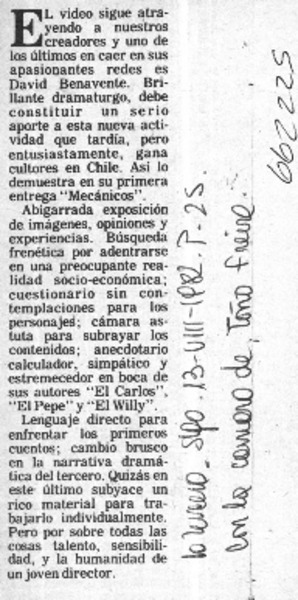 EL video sigue atra-
yendo a nuestros
creadores y uno de
los últimos en caer en sus
apasionantes redes es
David Benavente. Bri-
llante dramaturgo, debe
constituir un serio
aporte a esta nueva acti-
vidad que tardía, pero
entusiastamente, gana
cultores en Chile. Así lo
demuestra en su primera
entrega "Mecánicos".
Abigarrada exposición
de imágenes, opiniones y
experiencias. Búsqueda
frenética por adentrarse
en una preocupante rea-
lidad socio-económica;
cuestionario sin con-
templaciones para los
personajes; cámara as-
tuta para subrayar los
contenidos; anecdotario
calculador, simpático y
estremecedor en boca de
sus autores "El Carlos",
"El Pepe" y "El Willy".
Lenguaje directo para
enfrentar los primeros
cuentos; cambio brusco
en la narrativa dramá-
tica del tercero. Quizás en
este último subyace un
rico material para tra-
bajarlo individualmente.
Pero por sobre todas las
cosas talento, sensibili-
dad, y la humanidad de
un joven director.
Stgo. 13-VIII-1982. P-25.
con la camara de, Toño Freire.
662225